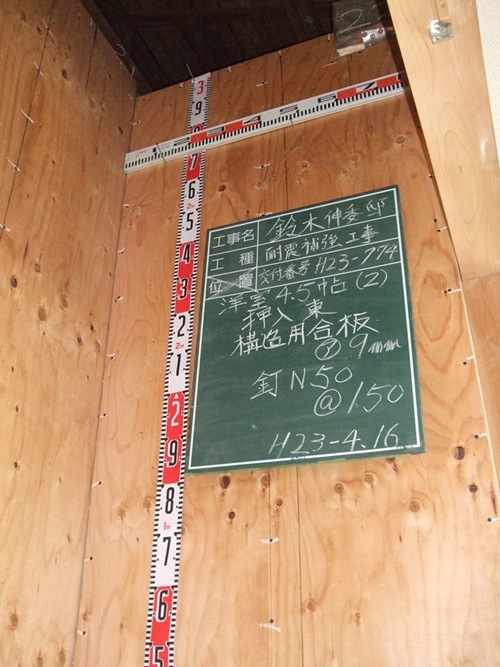 2
3
9
8
1 2 3 4 5 6 7
7
6
2m
5
4
3
2
2m
1
2
9
8
1m
7
6
5
工事名 鈴木伸委邸
工種 耐震補強工事
位置 交付番号 H23-774
洋室4.5帖(2)
押入東
構造用合板
⑦9mm
釘N50
@150
H23-4.16